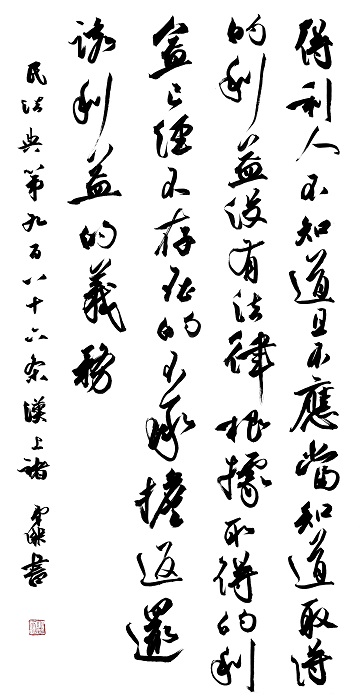 得利人不知道且不應當知道取得
的利益没有法律根據取得的利
益已經不存在的不承擔返還
該利益的義務
民法典第九百八十六條漢上諸
書